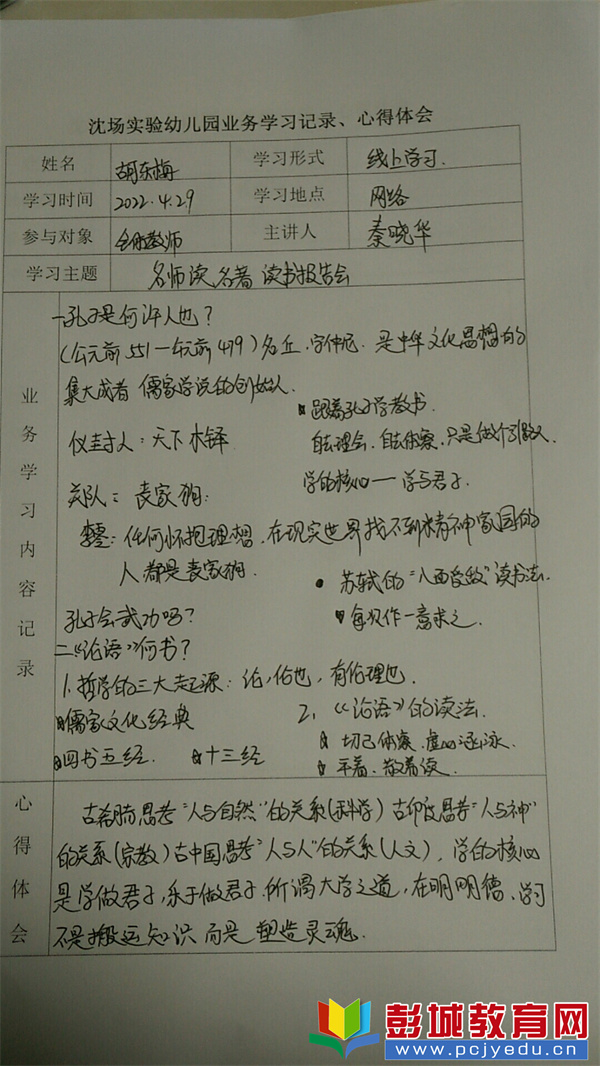 沈场实验幼儿园业务学习记录、心得体会
姓名 胡东梅 学习形式 线上学习.
学习时间 2022.4.29 学习地点 网络
参与对象 全体教师 主讲人 秦晓华
学习主题 名师读名著读书报告会
业务学习内容记录
一.孔子是何许人也?
(公元前551—公元前479)名丘.字仲尼.是中华文化思想的
集大成者 儒家学说的创始人.
跟着孔子学教书.
仪封人:天下木铎
自去理会.自去体察.只是做个引路人
学的核心——学与君子.
郑人:丧家狗:
李零:任何怀抱理想.在现实世界找不到精神家园的
人都是丧家狗.
苏轼的"八面受敌"读书法.
孔子会武功吗?
每次作一意求之.
二.《论语》何书?
1.哲学的三大起源:论,伦也,有伦理也.
儒家文化经典
2.《论语》的读法.
切己体察.虚心涵泳.
四书五经. 十三经
平着.散着读.
心得体会
古希腊思考"人与自然"的关系(科学) 古印度思考"人与神"
的关系(宗教)古中国思考"人与人"的关系(人文).学的核心
是学做君子,乐于做君子.所谓大学之道,在明明德.学习
不是搬运知识.而是塑造灵魂.
彭城教育网
www.pcjyedu.cn